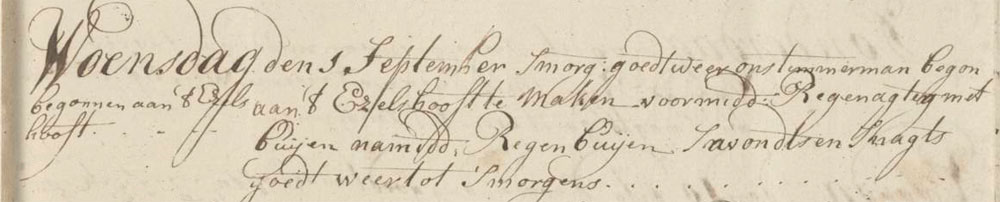 Woensdag den 1 September Smorg: goedt weer ons temmerman begon
begonnen aan 't Ezels
hooft.
aan 't Ezelshooft te Maken voormidd: Regenagtig met
buijen namidd: Regen buijen Savondts en Snagts
goedt weer tot Smorgens.